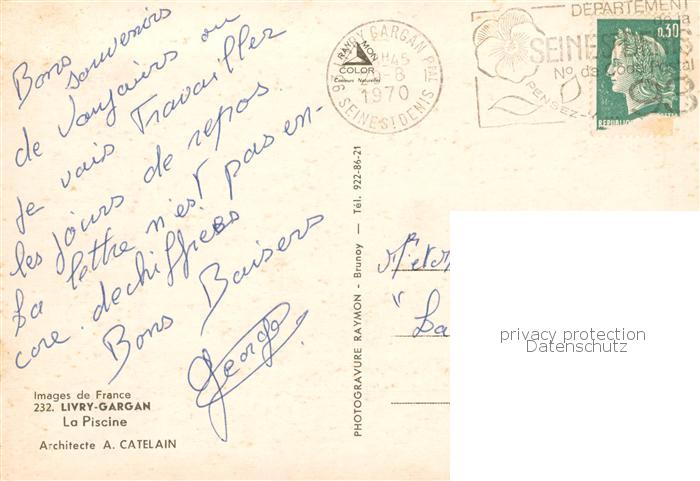 Bons souvenirs
de Vaujours ou
je vais Travailler
les jours de repos
La lettre n'est pas en-
core dechiffrées
Bons Baisers
George
Images de France
232. LIVRY-GARGAN
La Piscine
Architecte A. CATELAIN
PHOTOGRAVURE RAYMON - Brunoy — Tél. 922-86-21
RAYMON
COLOR
Couleurs Naturelles
LIVRY GARGAN PPAL
1970
SEINE ST DENIS
DÉPARTEMENT
de la
SEINE
No de Code Postal
PENSEZ
0,30
"La
privacy protection
Datenschutz